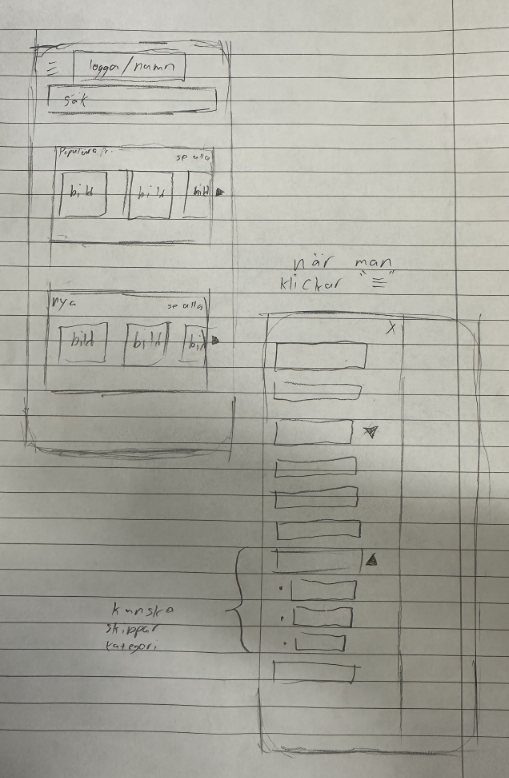 logga/namn
sök
Populära
se alla
bild
bild
bild
nya
se alla
bild
bild
bild
när man
klickar "≡"
X
kanske
skippar
kategori